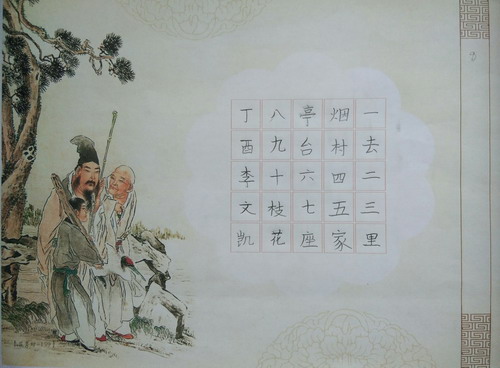 一去二三里
烟村四五家
亭台六七座
八九十枝花
丁酉李文凯